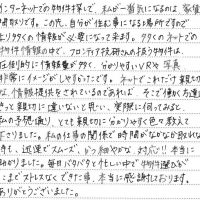 インターネットでの物件探しで、私が一番気になるのは、家賃
間取りです。この先、自分が住む事になる場所ですので
よりタクの情報が必要になって来ます。タクのネットでの
物件情報の中で、フロンティア技研さんの扱う物件は、
圧倒的に情報量が多く、分かりやすいVRや写真
非常にイメージがしやすかったです。ネットでこれだけ親切
な情報提供をされているのであれば、そこで働く方達
きっと親切に違いないと思い、実際に伺ってみると、
私の予想通り、とても親切に分かりやすく色々教えて
下さりました。私の仕事の関係で時間がなかなか取れな
いまま、迅速でスムーズ、かつ細やかな対応!!本当に
助かりました。毎日バタバタと忙しい中で物件選びが
ここまでストレスなくできた事、本当に感謝しております。
ありがとうございました。